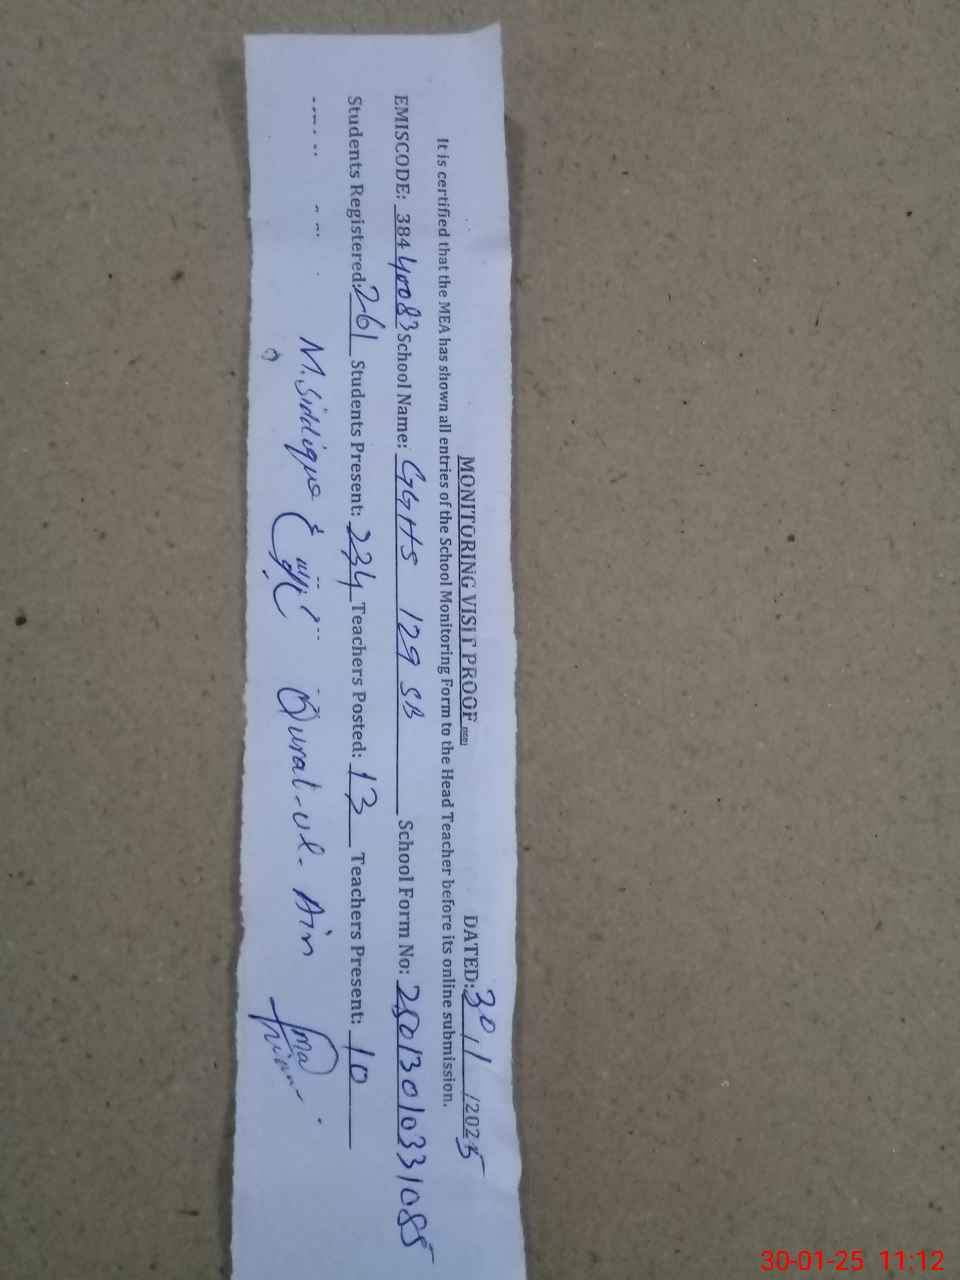 MONITORING VISIT PROOF DATED: 30/1/2025
It is certified that the MEA has shown all entries of the School Monitoring Form to the Head Teacher before its online submission.
EMISCODE: 38440083 School Name: GGHS 129 SB School Form No: 25013010331085
Students Registered: 261 Students Present: 234 Teachers Posted: 13 Teachers Present: 10
M. Siddique Qurat-ul-Ain
30-01-25 11:12